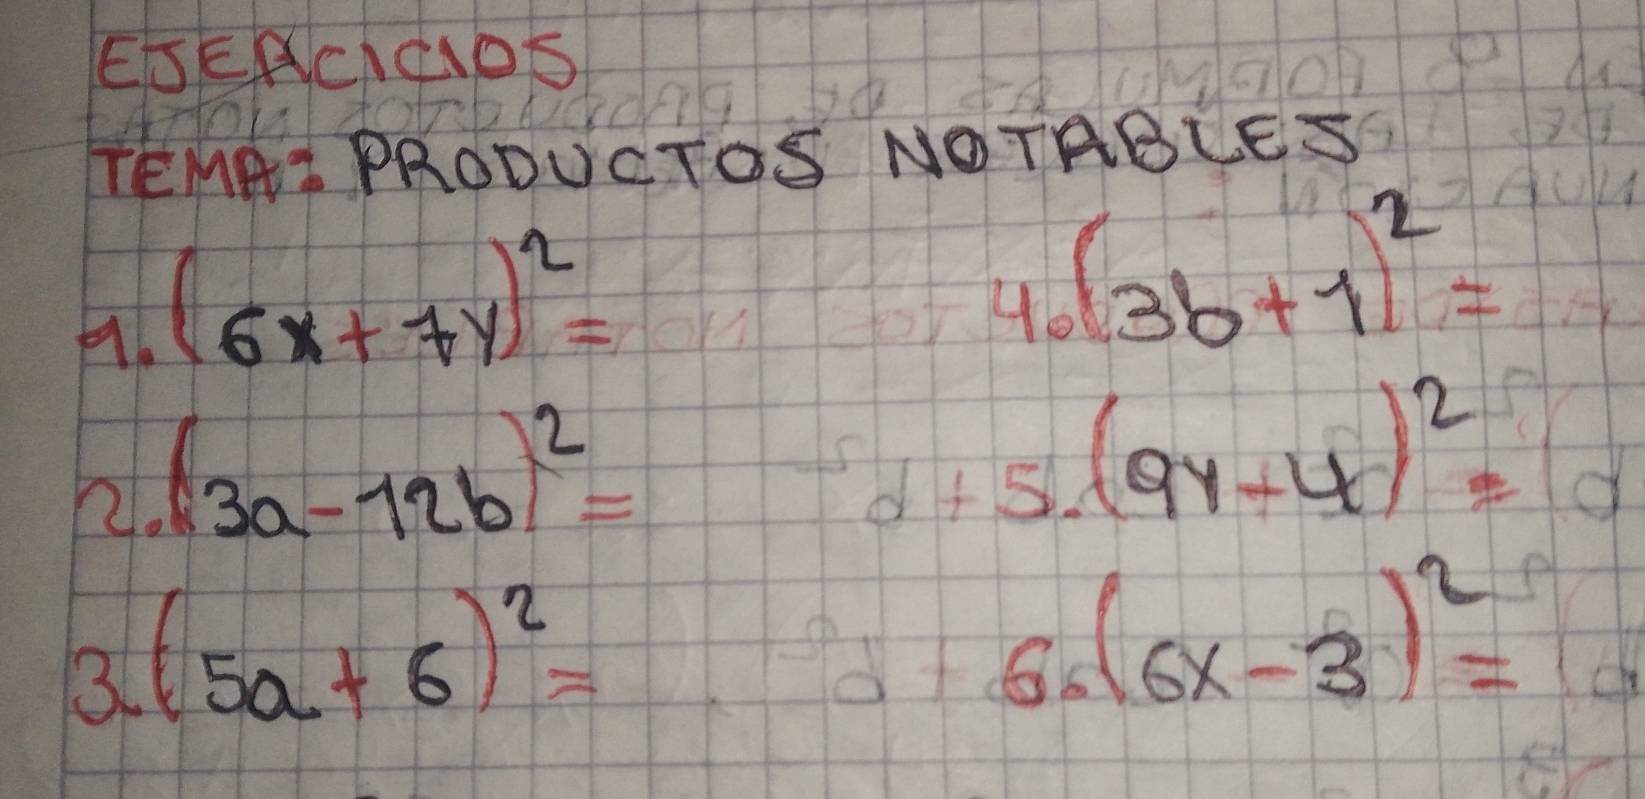 EJERCICIOS
TEMA: PRODUCTOS NOTABLES
1. (6x + 7y)² =
4. (3b + 1)² =
2. (3a - 12b)² =
5. (9y + 4)² =
3. (5a + 6)² =
6. (6x - 3)² =